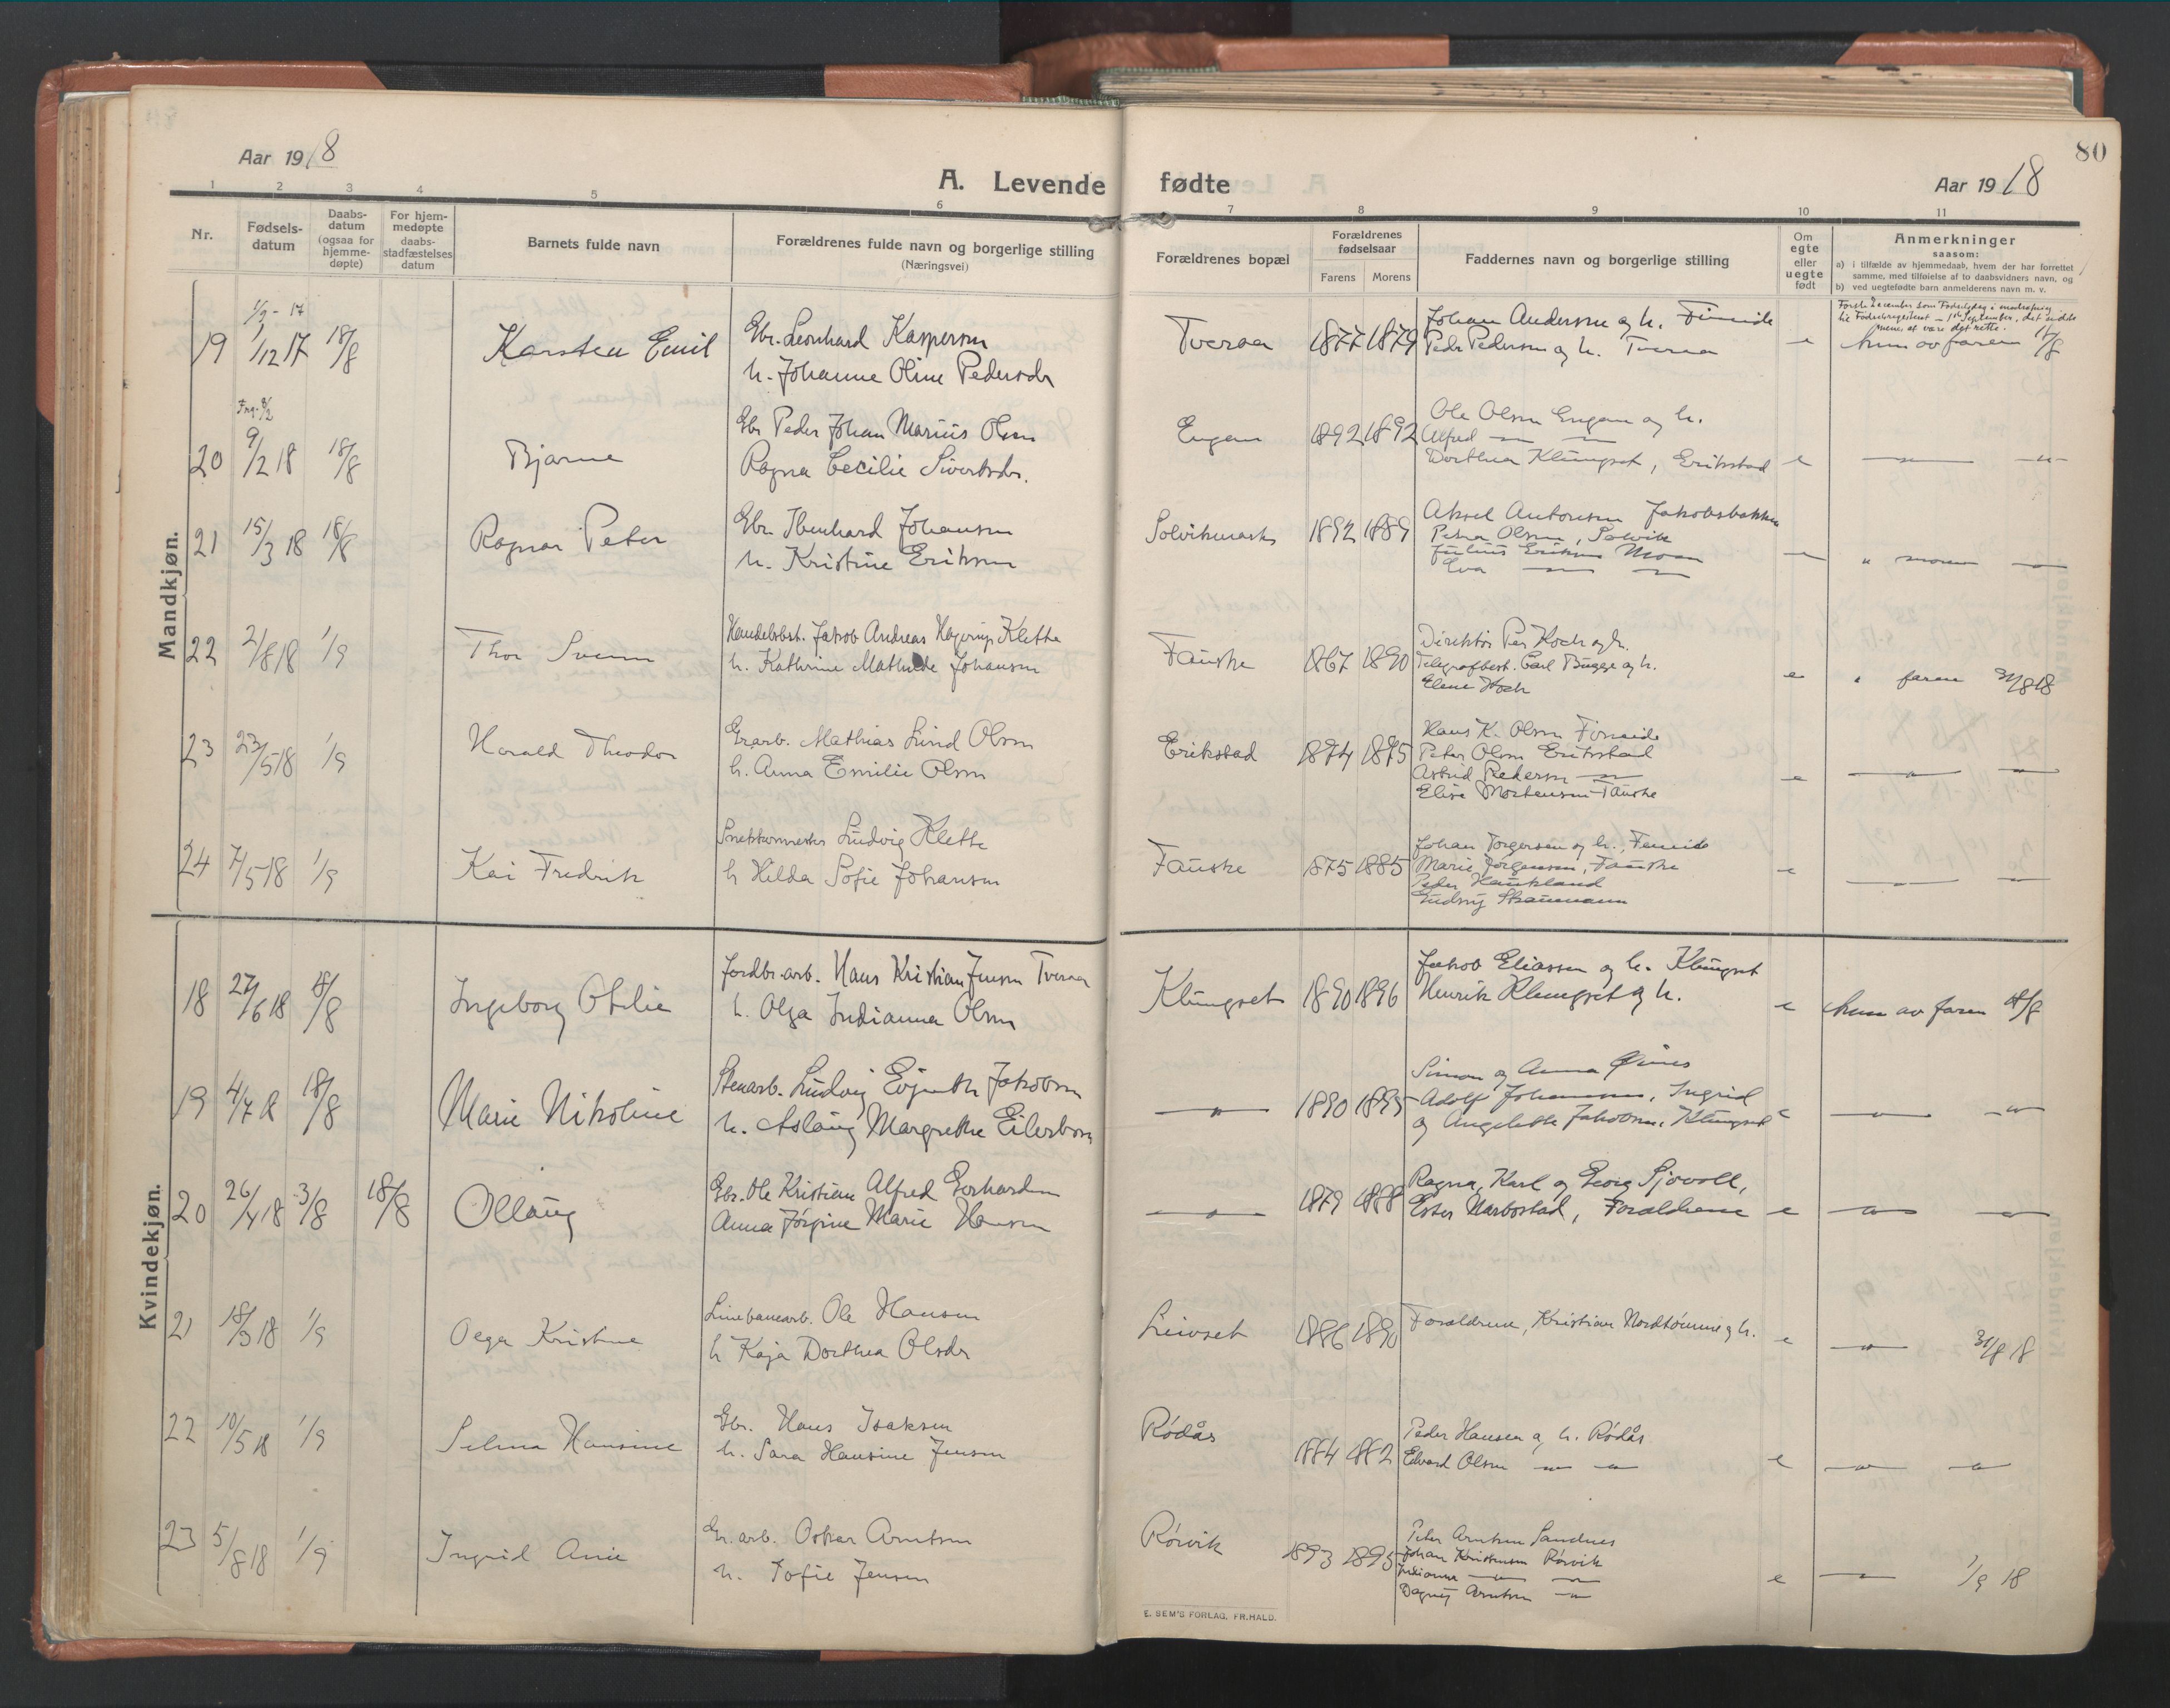 80
Aar 1918
A. Levende fødte
Aar 1918
1 2 3 4 5 6 7 8 9 10 11
Nr.
Fødsels-
datum
Daabs-
datum
(ogsaa for
hjemme-
døpte)
For hjem-
medøpte
daabs-
stadfæstelses
datum
Barnets fulde navn
Forældrenes fulde navn og borgerlige stilling
(Næringsvei)
Forældrenes bopæl
Forældrenes
fødselsaar
Farens Morens
Faddernes navn og borgerlige stilling
Om
egte
eller
uegte
født
Anmerkninger
saasom:
a) i tilfælde av hjemmedaab, hvem der har forrettet
samme, med tilføielse af to daabsvidners navn, og
b) ved uegtefødte barn anmelderens navn m. v.
Mandkjøn.
1/9 - 17
19 1/12 17 18/8 Karsten Emil Gbr. Leonhard Kaspersen
h. Johanne Oline Pedersdr
Tveraa 1877 1879 Johan Andersen og h. Finneide
Peder Pedersen og h. Tveraa
e hun av faren 18/8
20 9/2 18 18/8 Bjarne Gbr Peder Johan Marius Olsen
Ragna Cecilie Sivertsdr.
Engan 1892 1892 Ole Olsen Engan og h.
Alfred — —
Dorthea Klungset, Erikstad
e — " — — " —
21 15/3 18 18/8 Ragnar Peter Gbr. Ibenhard Johansen
h. Kristine Eriksen
Solvikmark 1892 1889 Aksel Antonsen Jakobsbakken
Petra Olsen, Solvik
Julius Eriksen Moen
Eva — —
" moren — " —
22 2/8 18 1/9 Thor Svenn Handelsbst. Jakob Andreas Hagerup Klette
h. Kathrine Mathilde Johansen
Fauske 1867 1890 Direktør Per Koch og h.
Telegrafbest. Carl Bugge og h.
Elene Koch
e " faren 31/8 18
23 23/5 18 1/9 Harald Theodor Grarb. Mathias Lund Olsen
h. Anna Emilie Olsen
Erikstad 1874 1875 Hans K. Olsen Finneide
Peter Olsen Erikstad
Astrid Pedersen — " —
Elise Mortensen Fauske
e — " — — " —
24 7/5 18 1/9 Kai Fredrik Ludvig Klette
h Hilda Sofie Johansen
Fauske 1875 1885 Johan Torgersen og h., Finneide
Marie Jørgensen, Fauske
Peder Haukland
Ludvig Straumann
e — " — — " —
Kvindekjøn.
18 27/6 18 18/8 Ingeborg Otilie Jordbr.arb. Hans Kristian Jensen Tveraa
h. Olga Indianna Olsen
Klungset 1890 1896 Jakob Eliassen og h. Klungset
Henrik Klungset og h.
e hun av faren 18/8
19 4/7 18 18/8 Marie Nikoline Stenarb. Ludvig Evjenth Jakobsen
h. Aslaug Margrethe Eilertsen
— " — 1890 1895 Simon og Anna Øines
Adolf Johannesen, Ingrid
og Angelette Jakobsen, Klungset
e — " — — " —
20 26/4 18 3/8 18/8 Ollaug Gbr. Ole Kristian Alfred Gerhardsen
Anna Jørgine Marie Hansen
— " — 1879 1888 Ragna, Karl og Georg Sjovoll,
Ester Narbostad, Forældrene
e — " — — " —
21 18/3 18 1/9 Olga Kristine Linebanearb. Ole Hansen
h Kaja Dorthea Olsdr
Leivset 1886 1890 Forældrene, Kristian Nordtømme og h.
e — " — 31/8 18
22 10/5 18 1/9 Selma Hansine Gbr. Hans Isaksen
h. Sara Hansine Jensen
Rødås 1884 1882 Peder Hansen og h. Rødås
Edvard Olsen — " — — " —
e — " — — " —
23 5/8 18 1/9 Ingrid Anie Gr. arb. Oskar Arntsen
h. Sofie Jensen
Rørvik 1893 1895 Peter Arntsen Sandnes
Johan Kristensen Rørvik
Indianna — " — — " —
Dagny Arntsen — " —
e — " — 1/9 18
E. SEM'S FORLAG, FR.HALD.